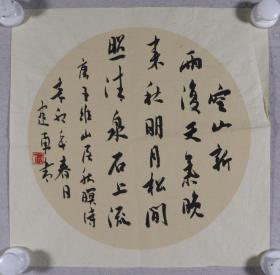 空山新
雨後天氣晚
来秋明月松間
照清泉石上流
唐王維山居秋暝詩
春日